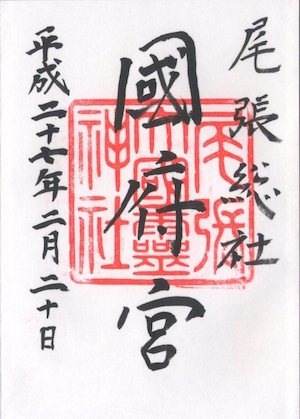 尾張総社
國府宮
平成二十七年二月二十日
尾張
大國靈
神社